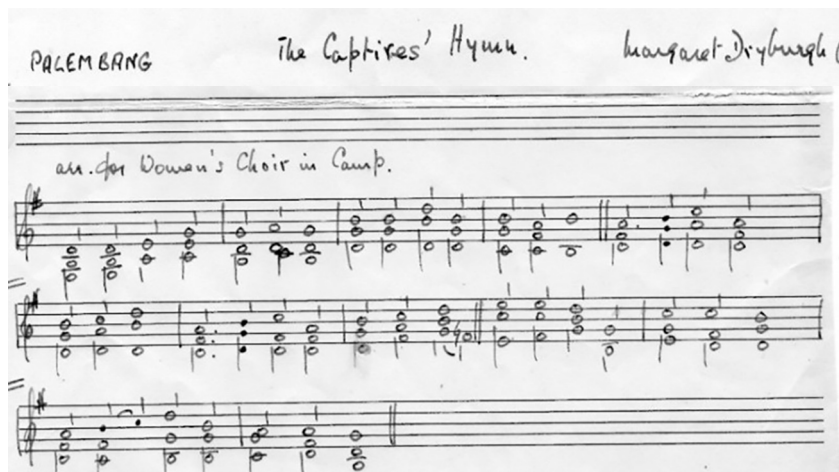 PALEMBANG The Captives' Hymn. Margaret Dryburgh
arr. for Women's Choir in Camp.